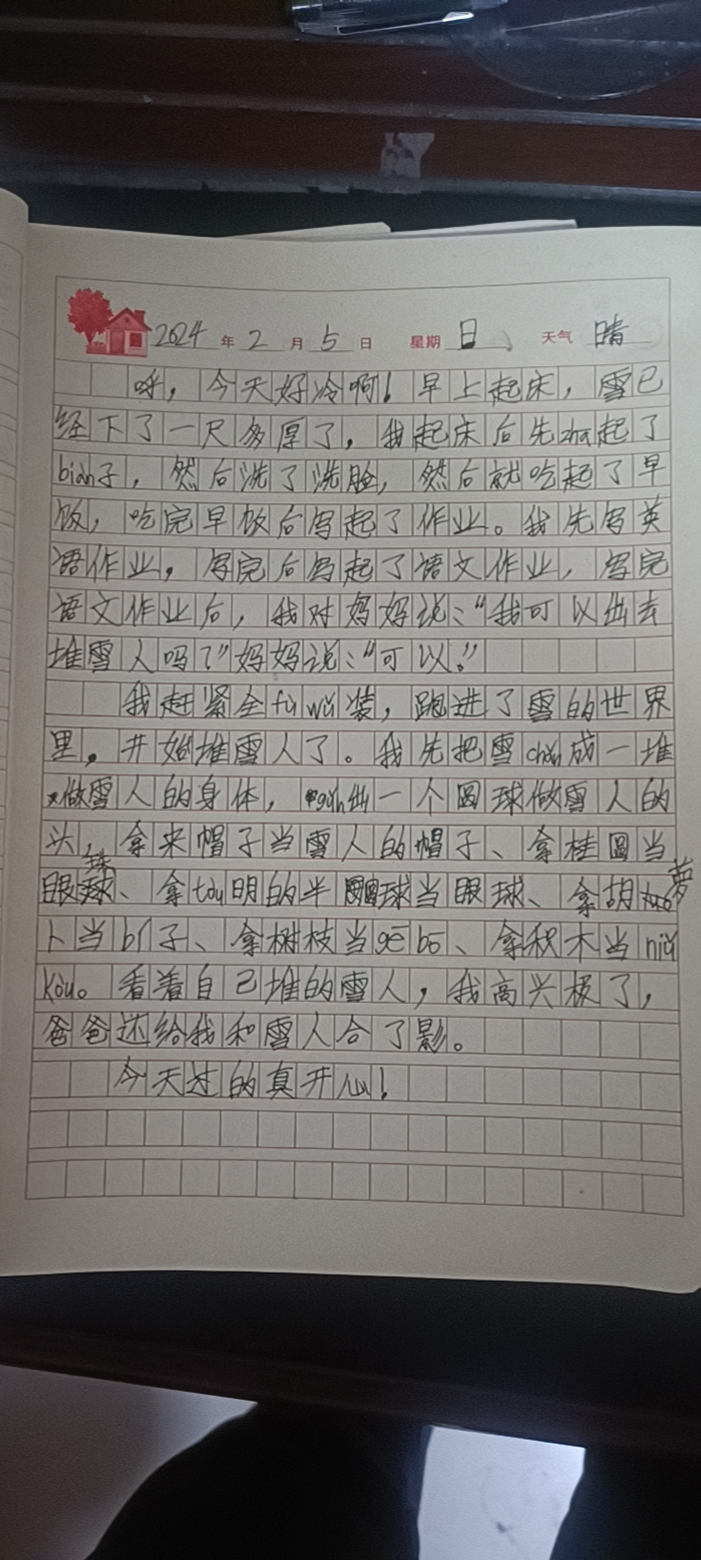 2024 年 2 月 5 日 星期 日 天气 晴
呼，今天好冷啊！早上起床，雪已
经下了一尺多厚了，我起床后先zha起了
bian子，然后洗了洗脸，然后就吃起了早
饭，吃完早饭后写起了作业。我先写英
语作业，写完后写起了语文作业，写完
语文作业后，我对妈妈说：“我可以出去
堆雪人吗？”妈妈说：“可以。”
我赶紧全fu wu装，跑进了雪的世界
里，开始堆雪人了。我先把雪chan成一堆
做雪人的身体，gun出一个圆球做雪人的
头，拿来帽子当雪人的帽子、拿桂圆当
眼球、拿tou明的半圆球当眼球、拿胡萝
卜当bi子、拿树枝当gē bo、拿积木当niu
kou。看着自己堆的雪人，我高兴极了，
爸爸还给我和雪人合了影。
今天过的真开心！